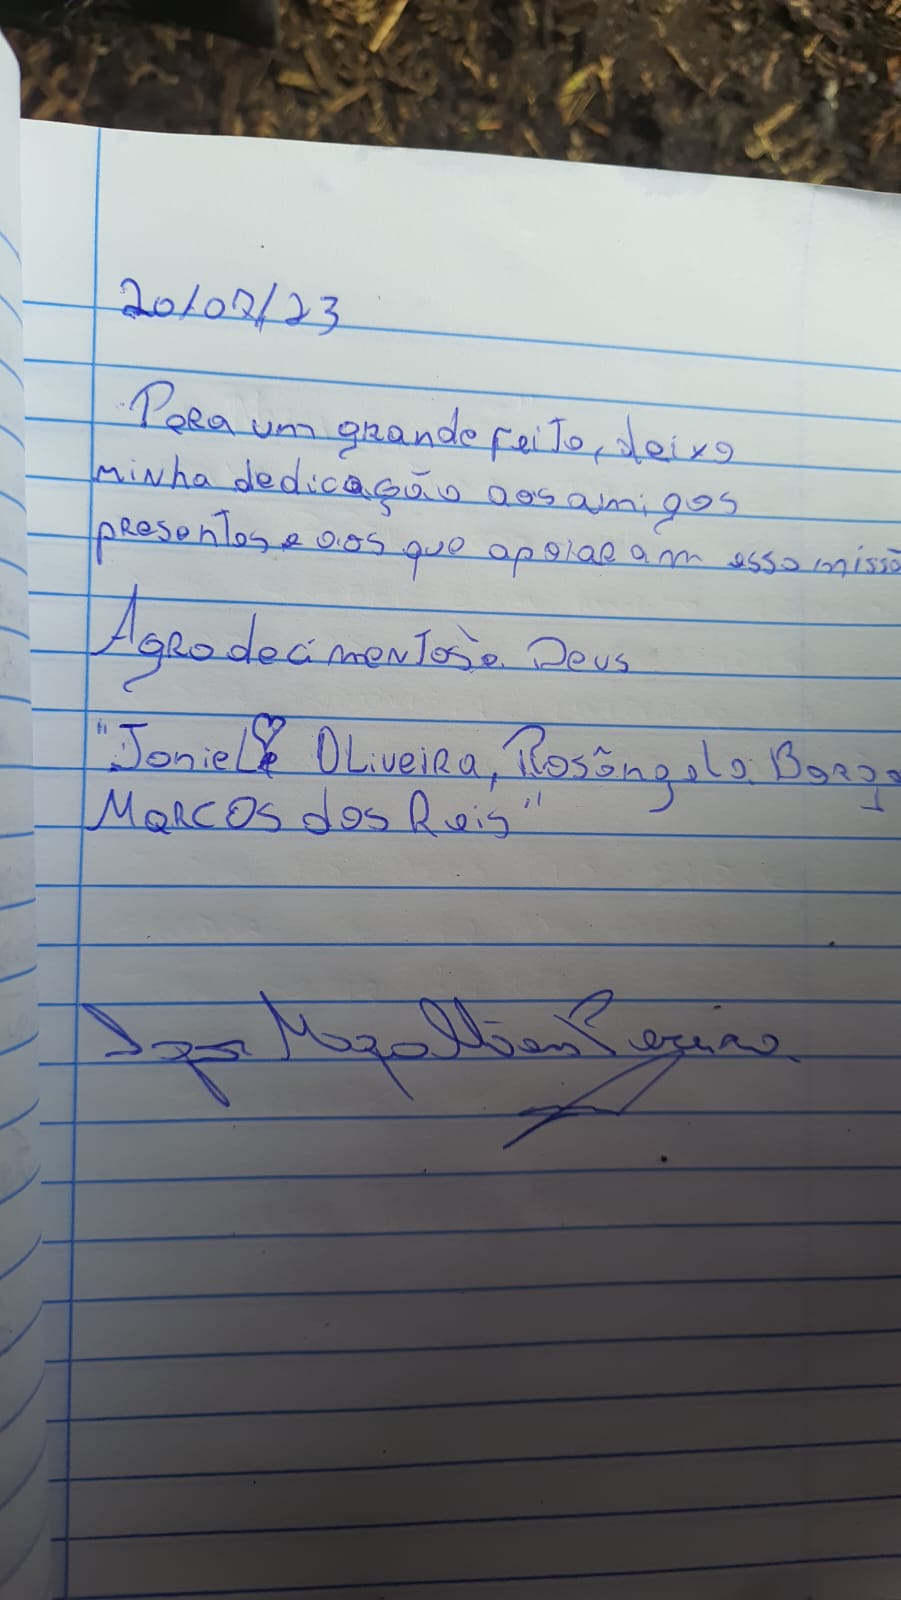 20/07/23
Para um grande feito, deixo
minha dedicação aos amigos
presentes e aos que apoiaram essa missã
Agradecimentos a Deus
"Joniele Oliveira, Rosângela Borg
Marcos dos Reis"
Magalhães Pereira